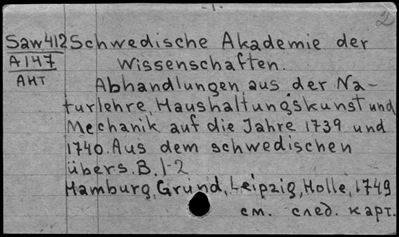 -1-
2
Saw412 Schwedische Akademie der
A147 Wissenschaften.
АНТ Abhandlungen aus der Na-
turlehre, Haushaltungskunst und
Mechanik auf die Jahre 1739 und
1740. Aus dem schwedischen
übers. B. 1-2
Hamburg, Grund, Leipzig, Holle, 1749
см. след. карт.